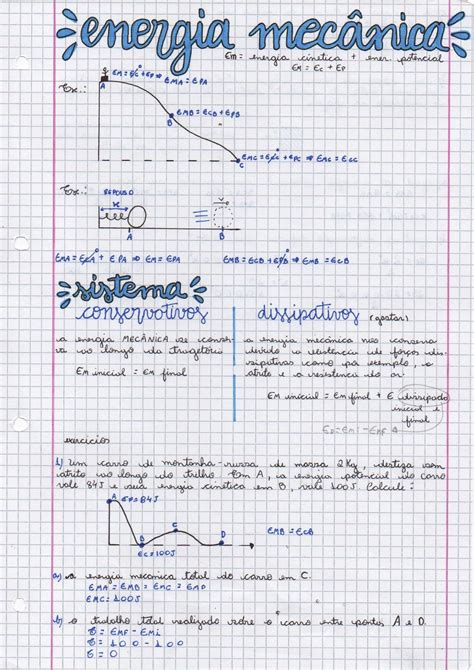 energia mecânica
Em = energia cinética + ener. potencial
Em = Ec + Ep
Ex.:
EMA = EcA + EPA ⇒ EMA = EPA
A
EMB = ECB + EPB
B
EMC = ECC + EPC ⇒ EMC = ECC
C
Ex.:
REPOUSO
x
V
A
B
EMA = ECA + EPA ⇒ EM = EPA
EMB = ECB + EPB ⇒ EMB = ECB
sistema
conservativos
dissipativos (gastar)
a energia MECÂNICA se conser-
va ao longo da trajetória
Em inicial = Em final
a energia mecânica não conserva
devido a existência de forças dis-
sipativas como por exemplo, o
atrito e a resistência do ar
Em inicial = Em final + E dissipada
inicial e
final
ED = EMi - EMF
exercícios
1) Um carro de montanha-russa de massa 2Kg, desliza sem
atrito ao longo do trilho. Em A, a energia potencial do carro
vale 84J e sua energia cinética em B, vale 100J. Calcule:
A
EP = 84J
B
EC = 100J
C
D
EMB = ECB
a) a energia mecanica total do carro em C.
EMA = EMB = EMC = EMD
EMC = 100J
b) o trabalho total realizado sobre o carro entre pontos A e D.
ᘔ = EMF - EMi
ᘔ = 100 - 100
ᘔ = 0